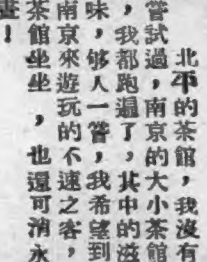 北平的茶館，我沒有
嘗試過，南京的大小茶館
，我都跑遍了，其中的滋
味，够人一嘗，我希望到
南京來遊玩的不速之客，
茶館坐坐，也還可消永
晝！